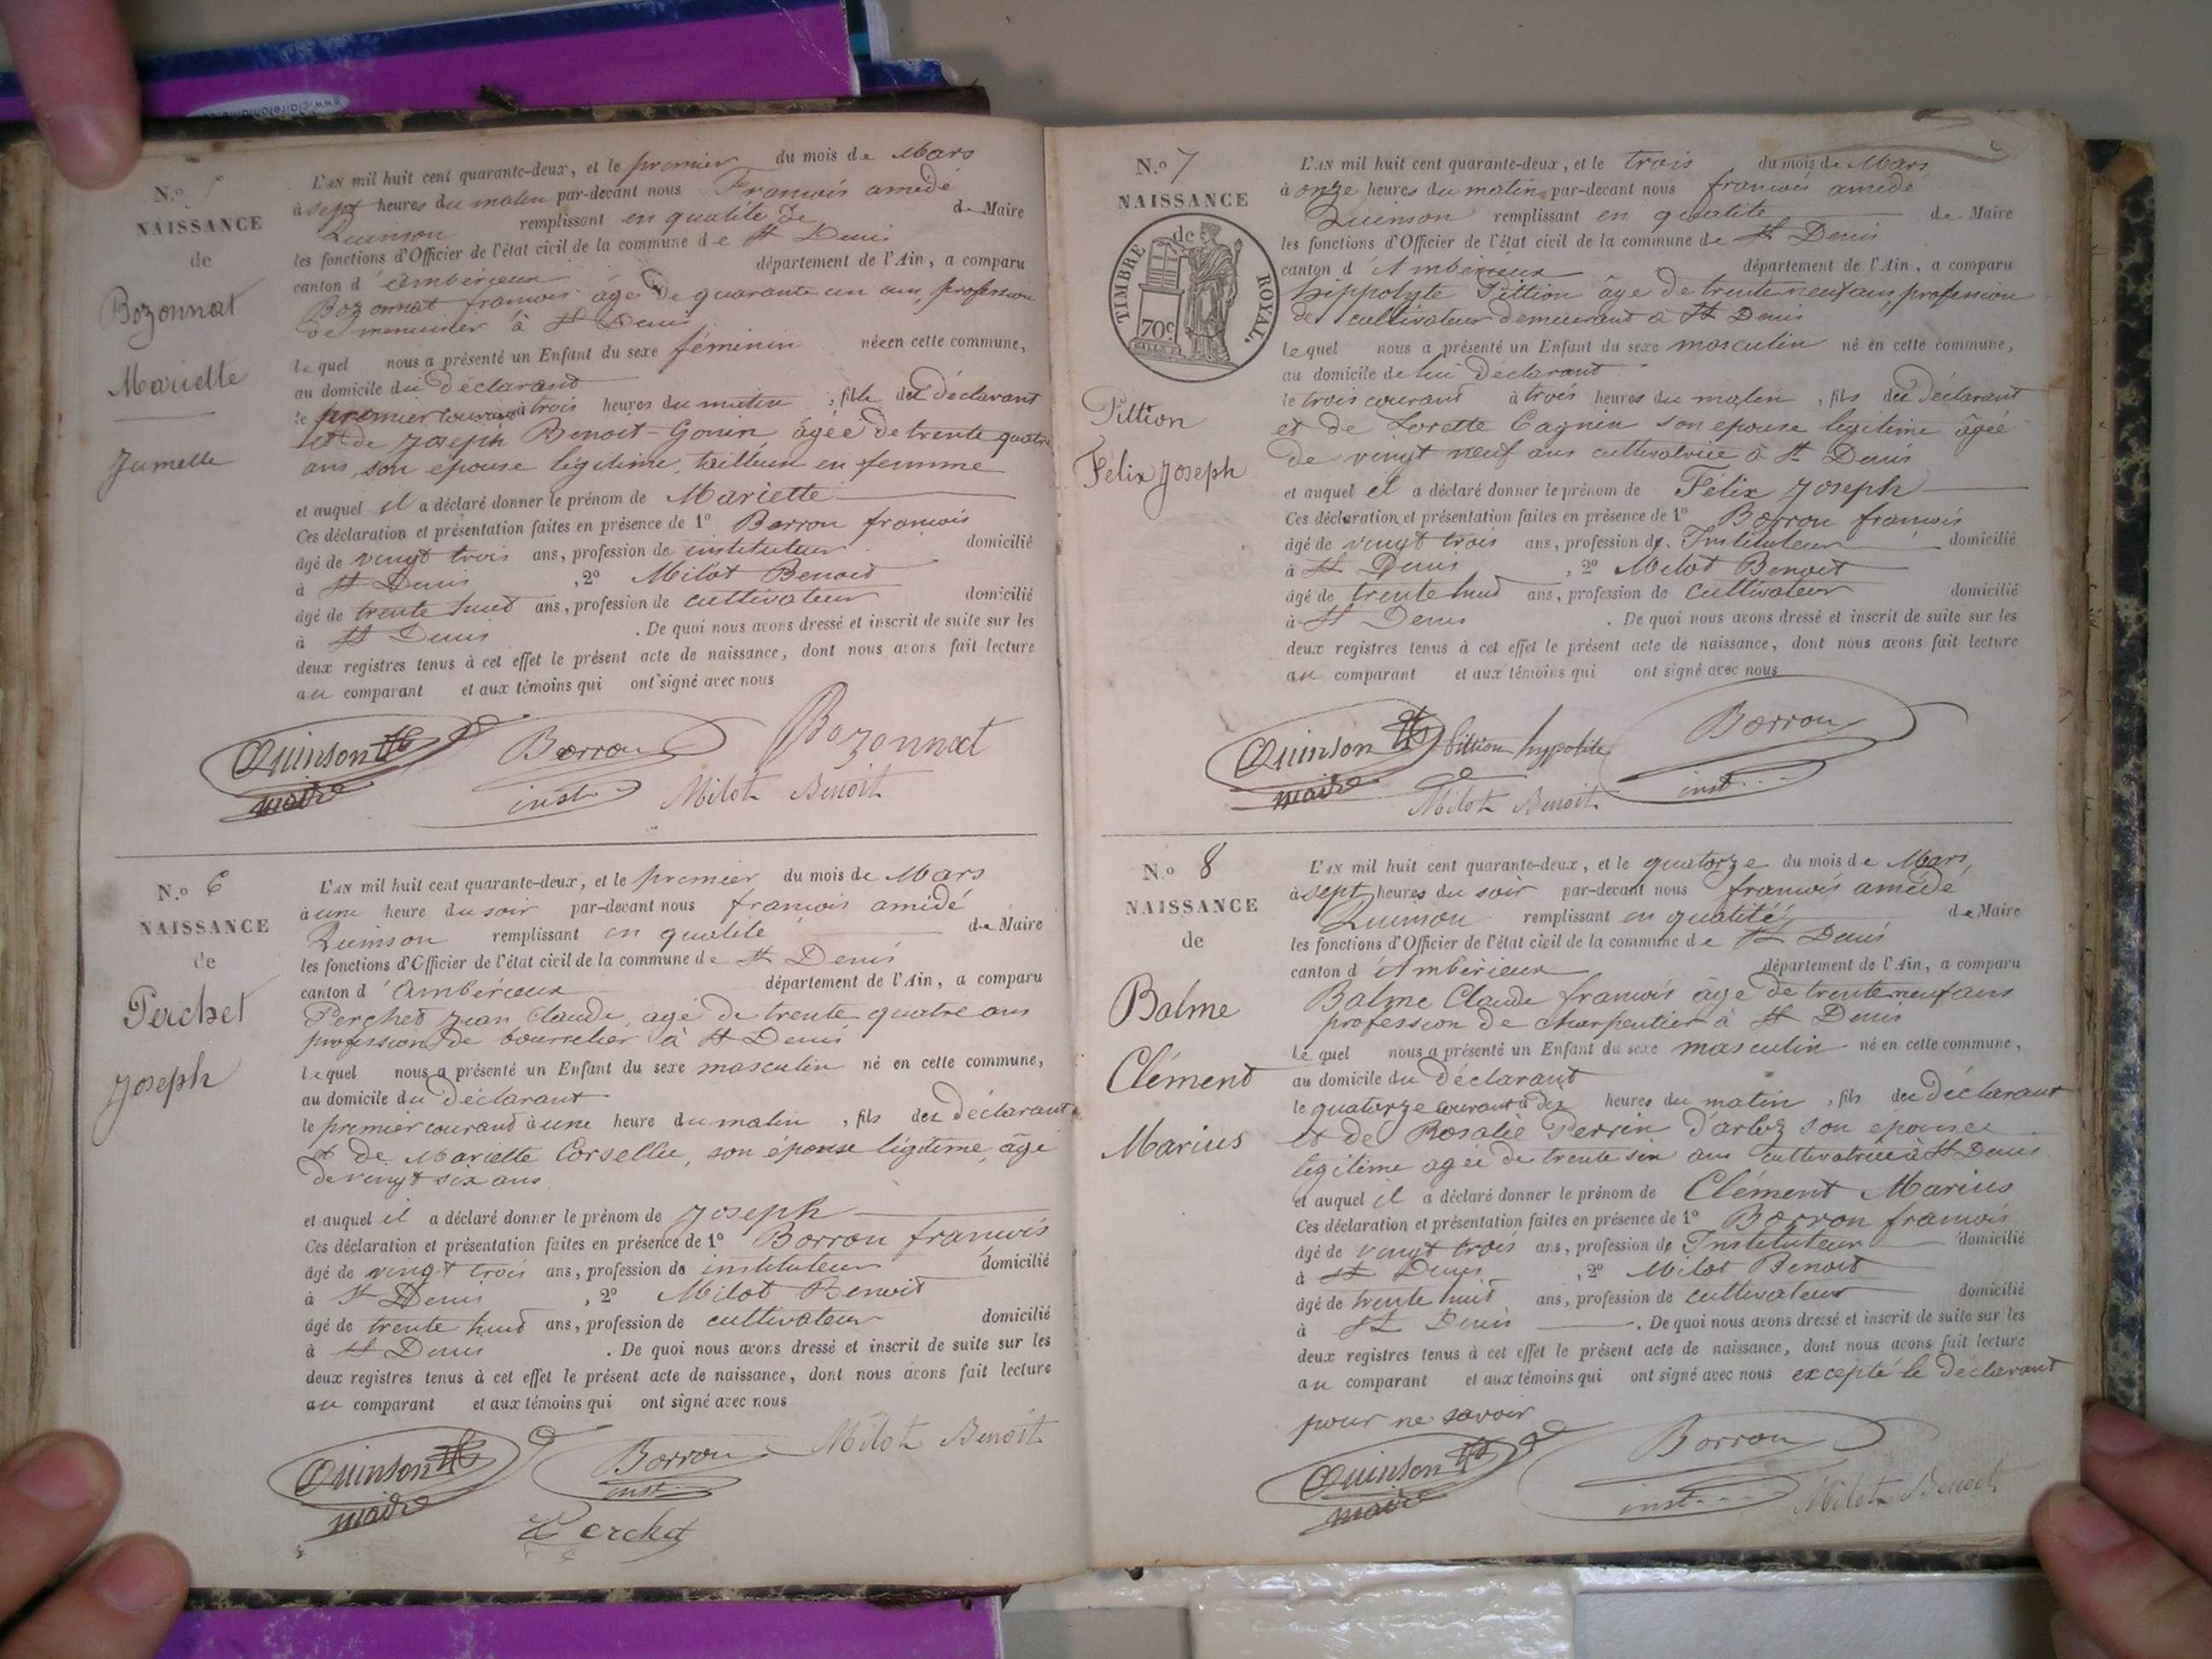 N.o 5
NAISSANCE
de
Bozonnat
Mariette
Jumelle
L'AN mil huit cent quarante-deux, et le premier du mois de Mars
à sept heures du matin par-devant nous François amédé
Quinson remplissant en qualité de de Maire
les fonctions d'Officier de l'état civil de la commune de St Denis
canton d'ambérieux département de l'Ain, a comparu
Bozonnat francois agé de quarante un ans, profession
de menuisier à St Denis
lequel nous a présenté un Enfant du sexe féminin née en cette commune,
au domicile du déclarant
le premier courant à trois heures du matin, fille du déclarant
et de Joseph Benoit-Gonin, âgée de trente quatre
ans, son epouse légitime, tailleuse en femme
et auquel il a déclaré donner le prénom de Mariette
Ces déclaration et présentation faites en présence de 1º Borron francois
âgé de vingt trois ans, profession de instituteur domicilié
à St Denis, 2º Milot Benoit
âgé de trente huit ans, profession de cultivateur domicilié
à St Denis. De quoi nous avons dressé et inscrit de suite sur les
deux registres tenus à cet effet le présent acte de naissance, dont nous avons fait lecture
au comparant et aux témoins qui ont signé avec nous
Quinson Borron Bozonnat
maire inst. Milot Benoit
N.o 6
NAISSANCE
de
Perchet
Joseph
L'AN mil huit cent quarante-deux, et le premier du mois de Mars
à une heure du soir par-devant nous francois amédé
Quinson remplissant en qualité de Maire
les fonctions d'Officier de l'état civil de la commune de St Denis
canton d'Ambérieux département de l'Ain, a comparu
Perchet Jean Claude, agé de trente quatre ans
profession de bourrelier à St Denis
lequel nous a présenté un Enfant du sexe masculin né en cette commune,
au domicile du déclarant
le premier courant à une heure du matin, fils du déclarant
et de Mariette Corsellie, son épouse légitime, âgé
de vingt six ans
et auquel il a déclaré donner le prénom de Joseph
Ces déclaration et présentation faites en présence de 1º Borron francois
âgé de vingt trois ans, profession de instituteur domicilié
à St Denis, 2º Milot Benoit
âgé de trente huit ans, profession de cultivateur domicilié
à St Denis. De quoi nous avons dressé et inscrit de suite sur les
deux registres tenus à cet effet le présent acte de naissance, dont nous avons fait lecture
au comparant et aux témoins qui ont signé avec nous
Quinson Borron Milot Benoit
maire inst.
Perchet
N.o 7
NAISSANCE
TIMBRE ROYAL.
de
70c
Pittion
Felix Joseph
L'AN mil huit cent quarante-deux, et le trois du mois de Mars
à onze heures du matin par-devant nous francois amédé
Quinson remplissant en qualité de Maire
les fonctions d'Officier de l'état civil de la commune de St Denis
canton d'Ambérieux département de l'Ain, a comparu
hippolyte Pittion âge de trente neuf ans profession
de cultivateur demeurant à St Denis
lequel nous a présenté un Enfant du sexe masculin né en cette commune,
au domicile de lui déclarant
le trois courant à trois heures du matin, fils du déclarant
et de Lorette Cagnin son epouse légitime âgée
de vingt neuf ans cultivatrice à St Denis
et auquel il a déclaré donner le prénom de Félix Joseph
Ces déclaration et présentation faites en présence de 1º Borron francois
âgé de vingt trois ans, profession de Instituteur domicilié
à St Denis, 2º Milot Benoit
âgé de trente huit ans, profession de cultivateur domicilié
à St Denis. De quoi nous avons dressé et inscrit de suite sur les
deux registres tenus à cet effet le présent acte de naissance, dont nous avons fait lecture
au comparant et aux témoins qui ont signé avec nous
Quinson Pittion hypolite Borron
maire Milot Benoit inst.
N.o 8
NAISSANCE
de
Balme
Clément
Marius
L'AN mil huit cent quarante-deux, et le quatorze du mois de Mars,
à sept heures du soir par-devant nous francois amédé
Quinson remplissant en qualité de Maire
les fonctions d'Officier de l'état civil de la commune de St Denis
canton d'Ambérieux département de l'Ain, a comparu
Balme Claude francois âge de trente neuf ans
profession de charpentier à St Denis
lequel nous a présenté un Enfant du sexe masculin né en cette commune,
au domicile du déclarant
le quatorze courant à dix heures du matin, fils du déclarant
et de Rosalie Perrin d'arloz son épouse
légitime agée de trente six ans cultivatrice à St Denis
et auquel il a déclaré donner le prénom de Clément Marius
Ces déclaration et présentation faites en présence de 1º Borron francois
âgé de vingt trois ans, profession de Instituteur domicilié
à St Denis, 2º Milot Benoit
âgé de trente huit ans, profession de cultivateur domicilié
à St Denis. De quoi nous avons dressé et inscrit de suite sur les
deux registres tenus à cet effet le présent acte de naissance, dont nous avons fait lecture
au comparant et aux témoins qui ont signé avec nous excepté le déclarant
pour ne savoir
Quinson Borron
maire inst. Milot Benoit